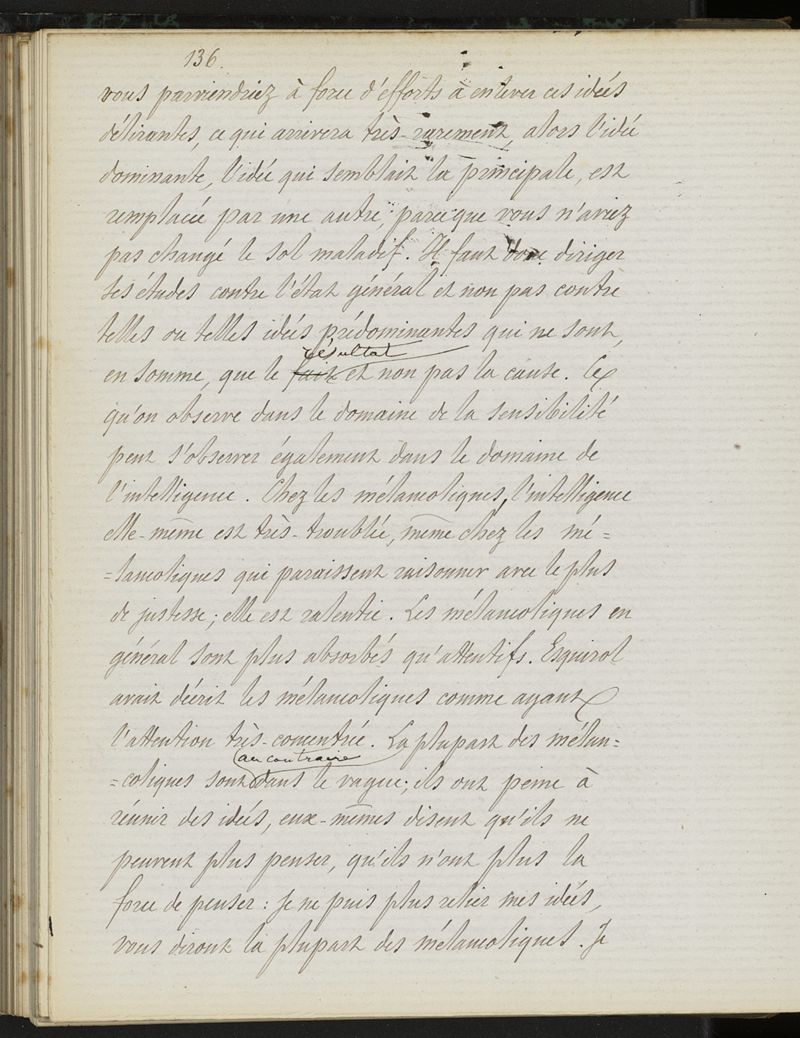 136.
vous parviendriez à force d'efforts à enlever ces idées
délirantes, ce qui arrivera très-rarement, alors l'idée
dominante, l'idée qui semblait la principale, est
remplacée par une autre, parce que vous n'aviez
pas changé le sol maladif. Il faut donc diriger
ses études contre l'état général et non pas contre
telles ou telles idées prédominantes qui ne sont,
résultat
en somme, que le fait et non pas la cause. Ce
qu'on observe dans le domaine de la sensibilité
peut s'observer également dans le domaine de
l'intelligence. Chez les mélancoliques, l'intelligence
elle-même est très-troublée, même chez les mé=
=lancoliques qui paraissent raisonner avec le plus
de justesse; elle est ralentie. Les mélancoliques en
général sont plus absorbés qu'attentifs. Esquirol
avait décrit les mélancoliques comme ayant
l'attention très-concentrée. La plupart des mélan=
au contraire
=coliques sont dans le vague; ils ont peine à
réunir des idées, eux-mêmes disent qu'ils ne
peuvent plus penser, qu'ils n'ont plus la
force de penser: Je ne puis plus relier mes idées,
vous diront la plupart des mélancoliques. Je